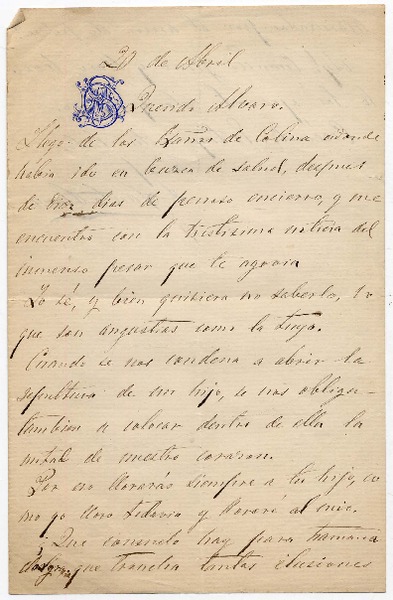 de Abril
Querido Alvaro.
Llego de los Baños de Colina adonde
habia ido en busca de salud, despues
de dias de penoso encierro, y me
encuentro con la tristisima noticia del
inmenso pesar que te agovia
Yo sé, y bien quisiera no saberlo, lo
que son angustias como la tuya.
Cuando se nos condena a abrir la
sepultura de un hijo, se nos obliga
tambien a colocar dentro de ella la
mitad de nuestro corazon.
Por eso llorarás siempre a tu hijo, co
mo yo lloro todavia y lloraré al mio.
Que consuelo hay para tamaña
desgracia que troncha tantas ilusiones